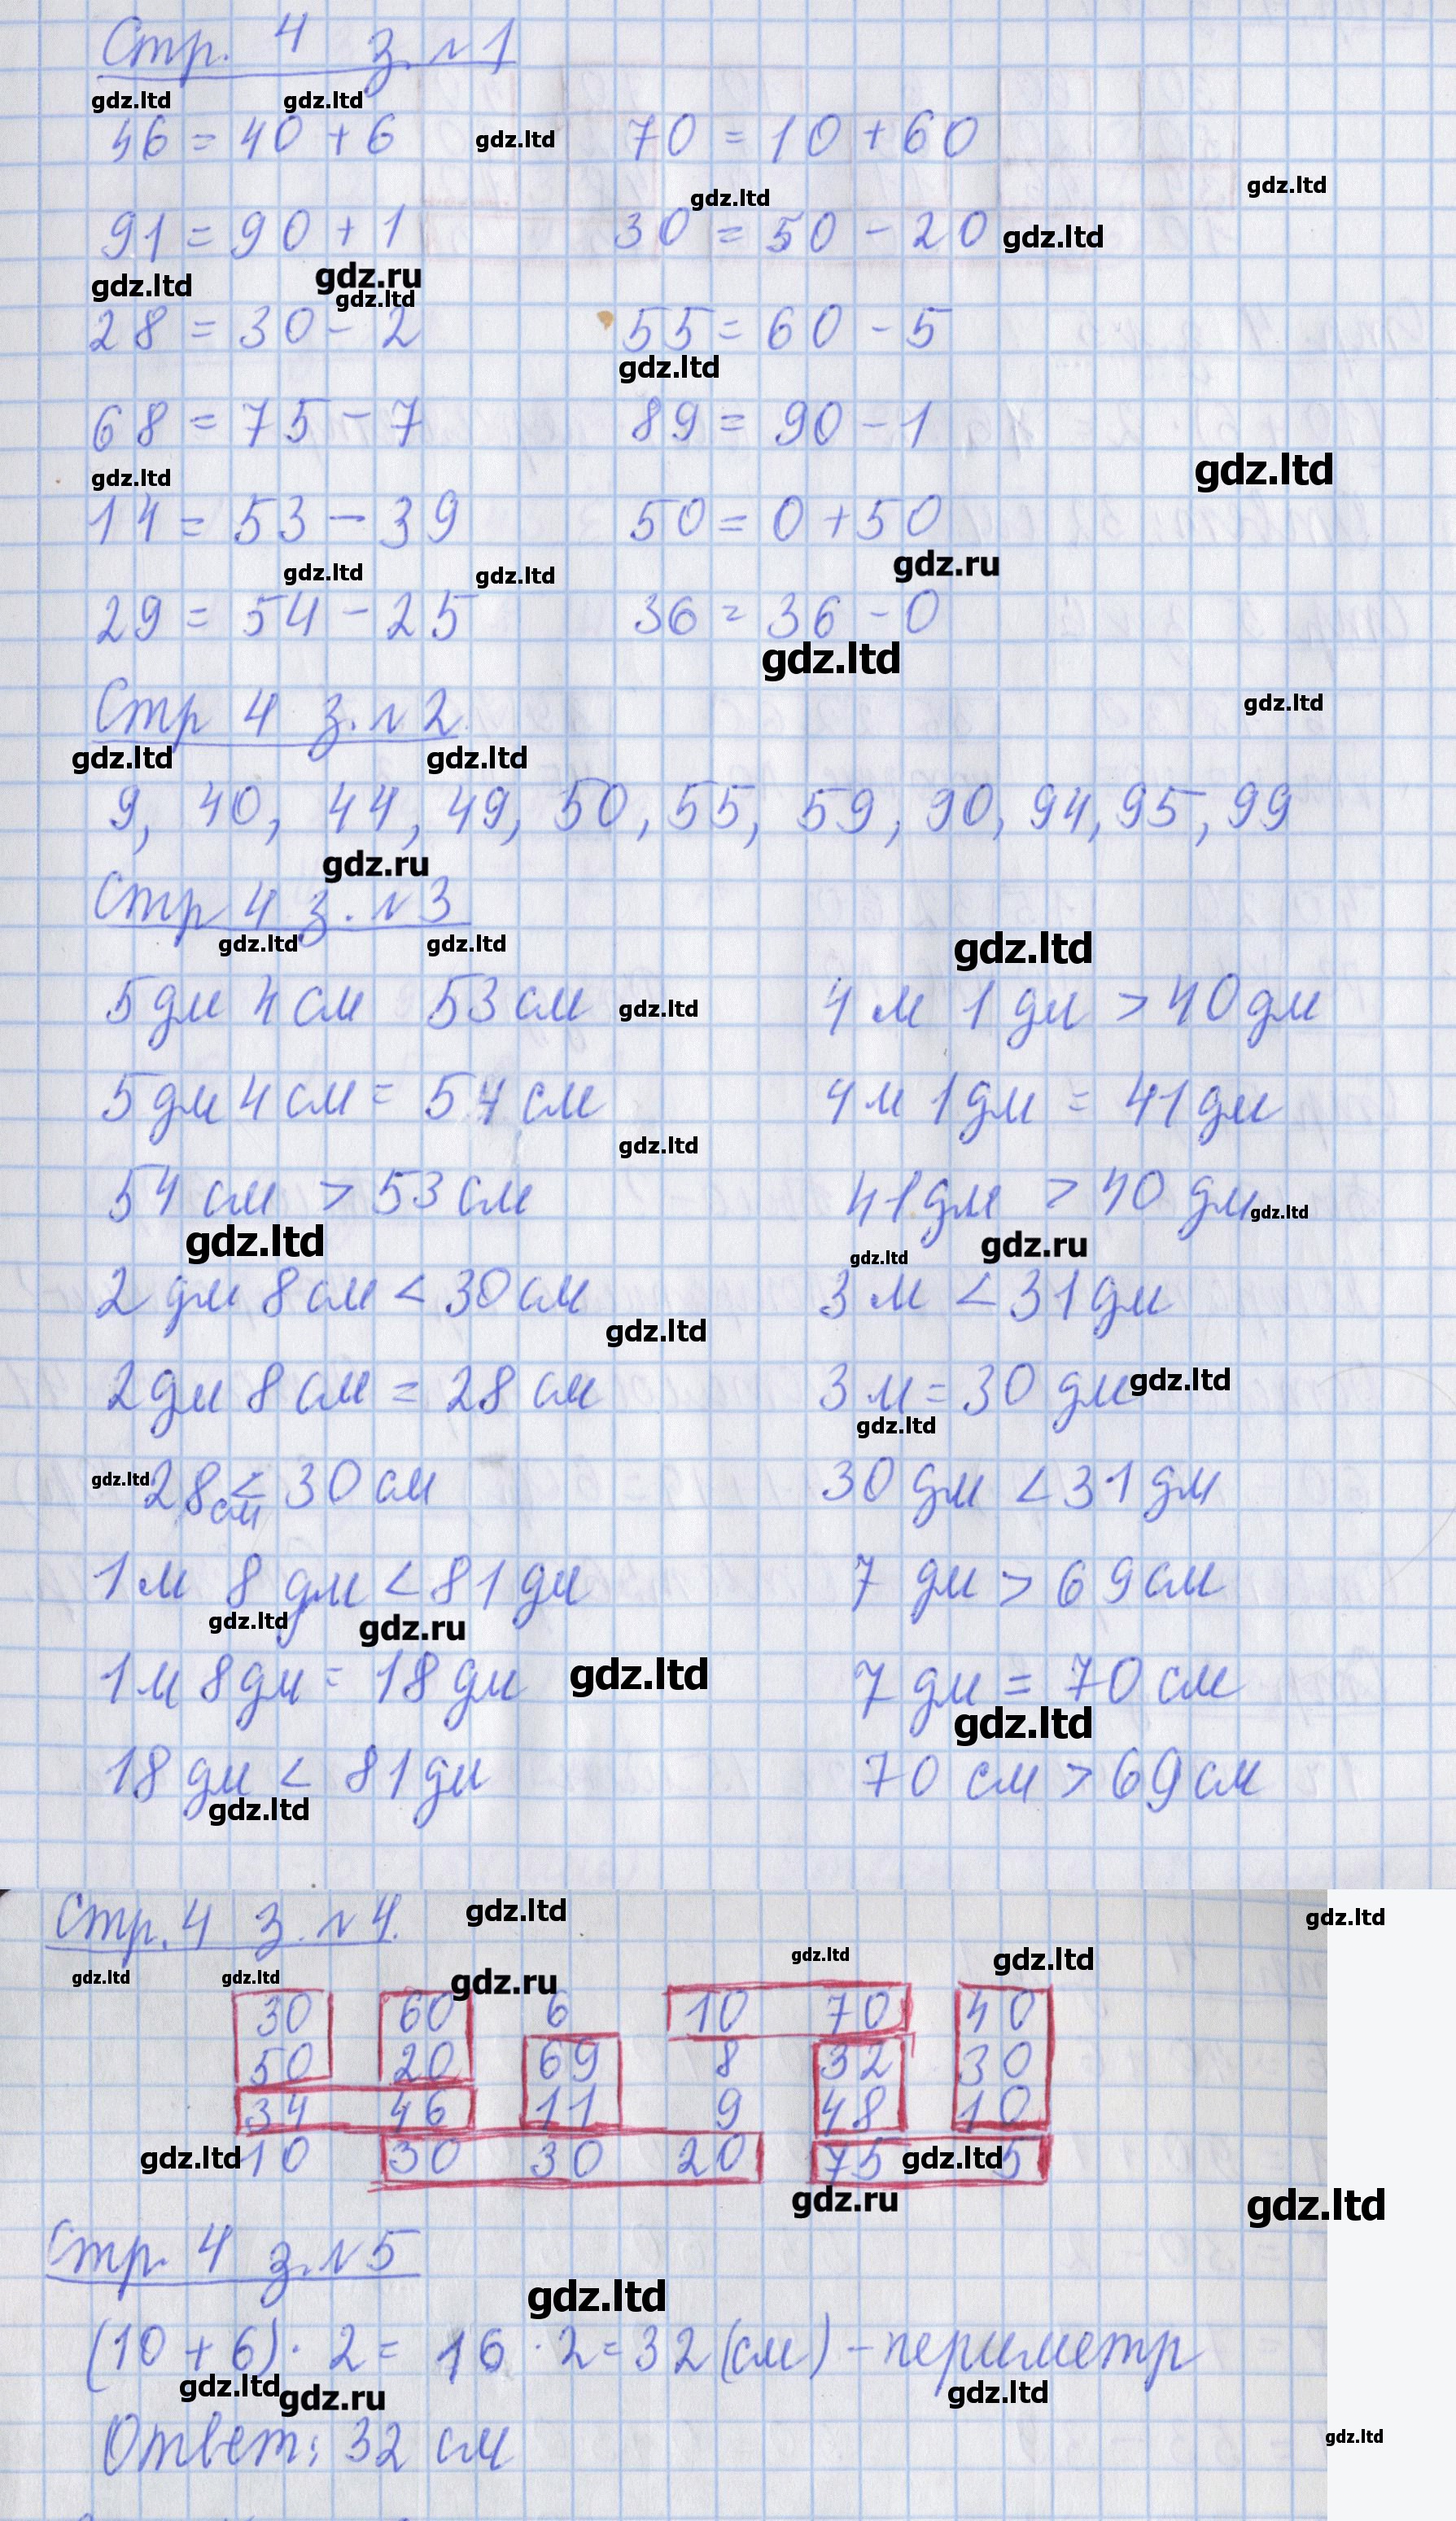 Стр. 4 з. № 1
gdz.ltd gdz.ltd
46 = 40 + 6 gdz.ltd 70 = 10 + 60
gdz.ltd gdz.ltd
91 = 90 + 1 30 = 50 - 20 gdz.ltd
gdz.ltd gdz.ru
gdz.ltd
28 = 30 - 2 55 = 60 - 5
gdz.ltd
68 = 75 - 7 89 = 90 - 1
gdz.ltd gdz.ltd
14 = 53 - 39 50 = 0 + 50
gdz.ltd gdz.ltd gdz.ru
29 = 54 - 25 36 = 36 - 0
gdz.ltd
Стр 4 з. № 2 gdz.ltd
gdz.ltd gdz.ltd
9, 40, 44, 49, 50, 55, 59, 90, 94, 95, 99
gdz.ru
Стр 4 з. № 3
gdz.ltd gdz.ltd gdz.ltd
5 дм 4 см 53 см gdz.ltd 4 м 1 дм > 40 дм
5 дм 4 см = 54 см 4 м 1 дм = 41 дм
gdz.ltd
54 см > 53 см 41 дм > 40 дм gdz.ltd
gdz.ltd gdz.ltd gdz.ru
2 дм 8 см < 30 см 3 м < 31 дм
gdz.ltd
2 дм 8 см = 28 см 3 м = 30 дм gdz.ltd
gdz.ltd
gdz.ltd 28 см < 30 см 30 дм < 31 дм
1 м 8 дм < 81 дм 7 дм > 69 см
gdz.ltd gdz.ru
1 м 8 дм = 18 дм gdz.ltd 7 дм = 70 см
gdz.ltd
18 дм < 81 дм 70 см > 69 см
gdz.ltd
Стр. 4 з. № 4. gdz.ltd gdz.ltd
gdz.ltd gdz.ltd
gdz.ltd gdz.ltd gdz.ru
30 60 6 10 70 40
50 20 69 8 32 30
34 46 11 9 48 10
gdz.ltd 10 30 30 20 75 gdz.ltd 5
gdz.ru gdz.ltd
Стр. 4 з. № 5
gdz.ltd
(10 + 6) · 2 = 16 · 2 = 32 (см) - периметр
gdz.ltd gdz.ru gdz.ltd
Ответ: 32 см gdz.ltd